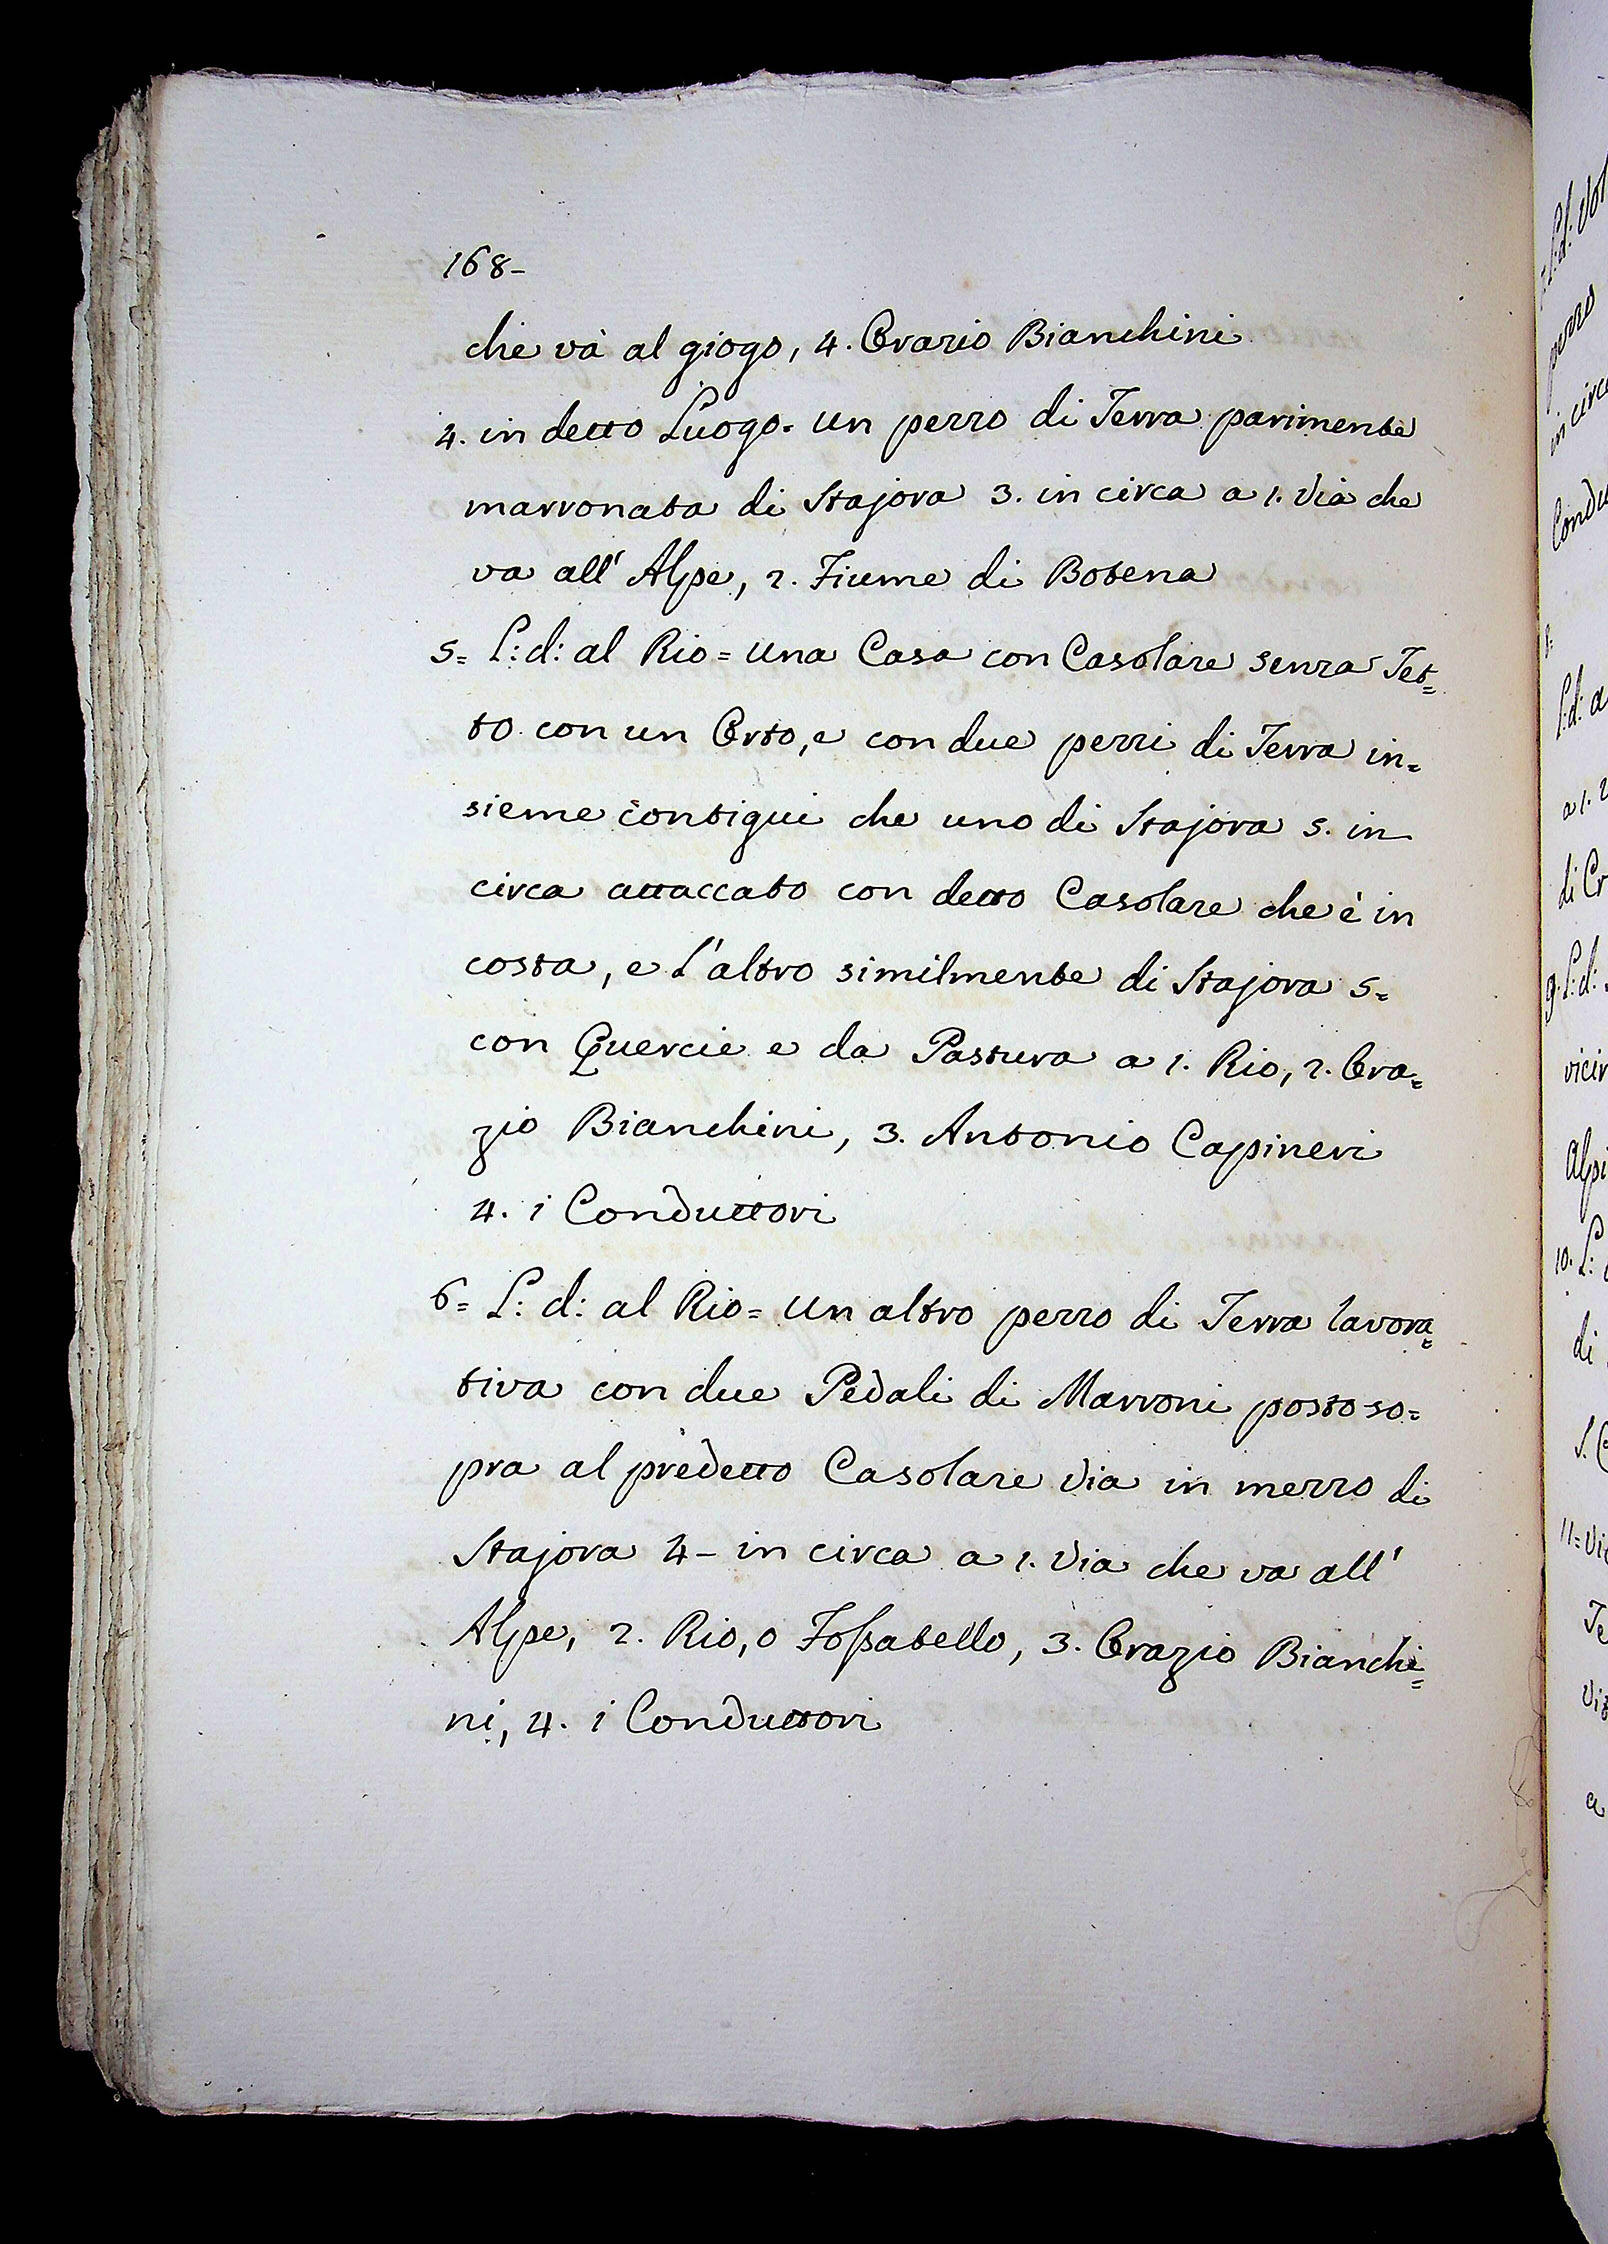 168-
che và al giogo, 4. Orazio Bianchini
4. in detto Luogo. un pezzo di Terra parimente
marronata di Stajora 3. in circa a 1. Via che
va all' Alpe, 2. Fiume di Botena
5= L: d: al Rio= una Casa con Casolare senza Tet=
to con un Orto, e con due pezzi di Terra in=
sieme contigui che uno di Stajora 5. in
circa attaccato con detto Casolare che è in
costa, e l'altro similmente di Stajora 5=
con Quercie e da Pastura a 1. Rio, 2. Ora=
zio Bianchini, 3. Antonio Capineri
4. i Conduttori
6= L: d: al Rio= un altro pezzo di Terra lavora=
tiva con due Pedali di Marroni posto so=
pra al predetto Casolare Via in mezzo di
Stajora 4- in circa a 1. Via che va all'
Alpe, 2. Rio, o Fossatello, 3. Orazio Bianchi=
ni, 4. i Conduttori